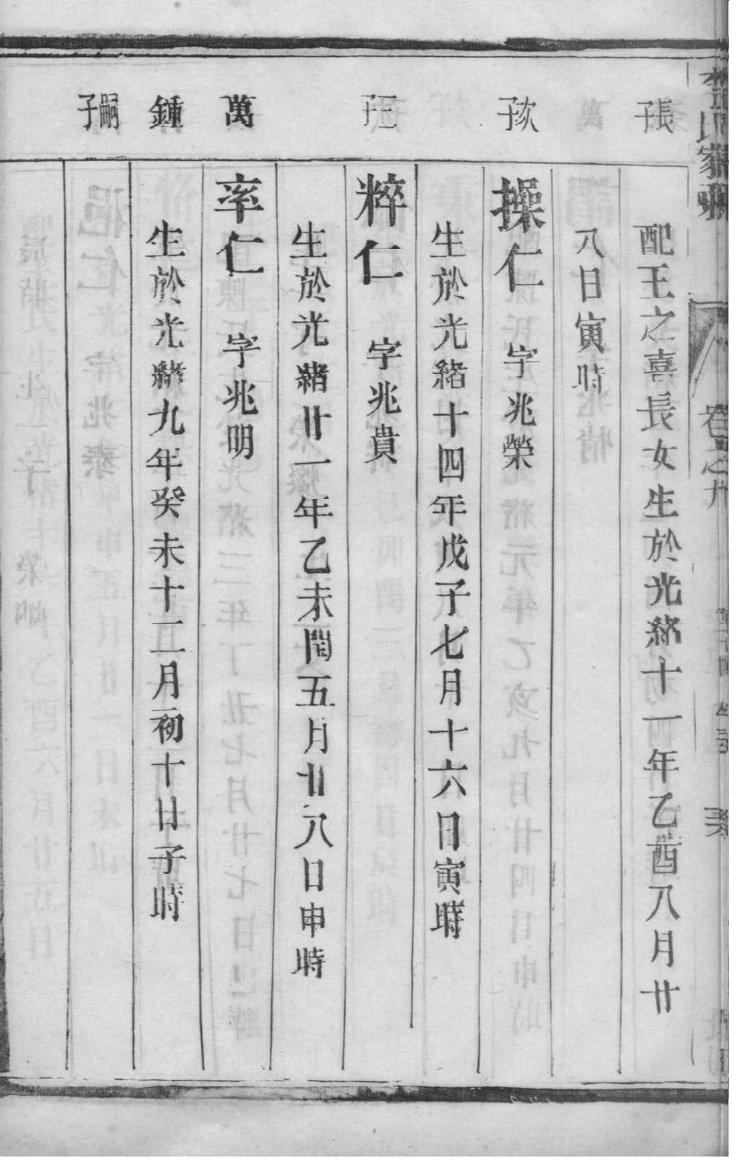 卷之九
張子
配王之喜長女生於光緒十一年乙酉八月廿
八日寅時
次子
操仁 字兆榮
生於光緒十四年戊子七月十六日寅時
三子
粹仁 字兆貴
生於光緒廿一年乙未閏五月廿八日申時
萬
率仁 字兆明
鍾
生於光緒九年癸未十二月初十日子時
嗣子